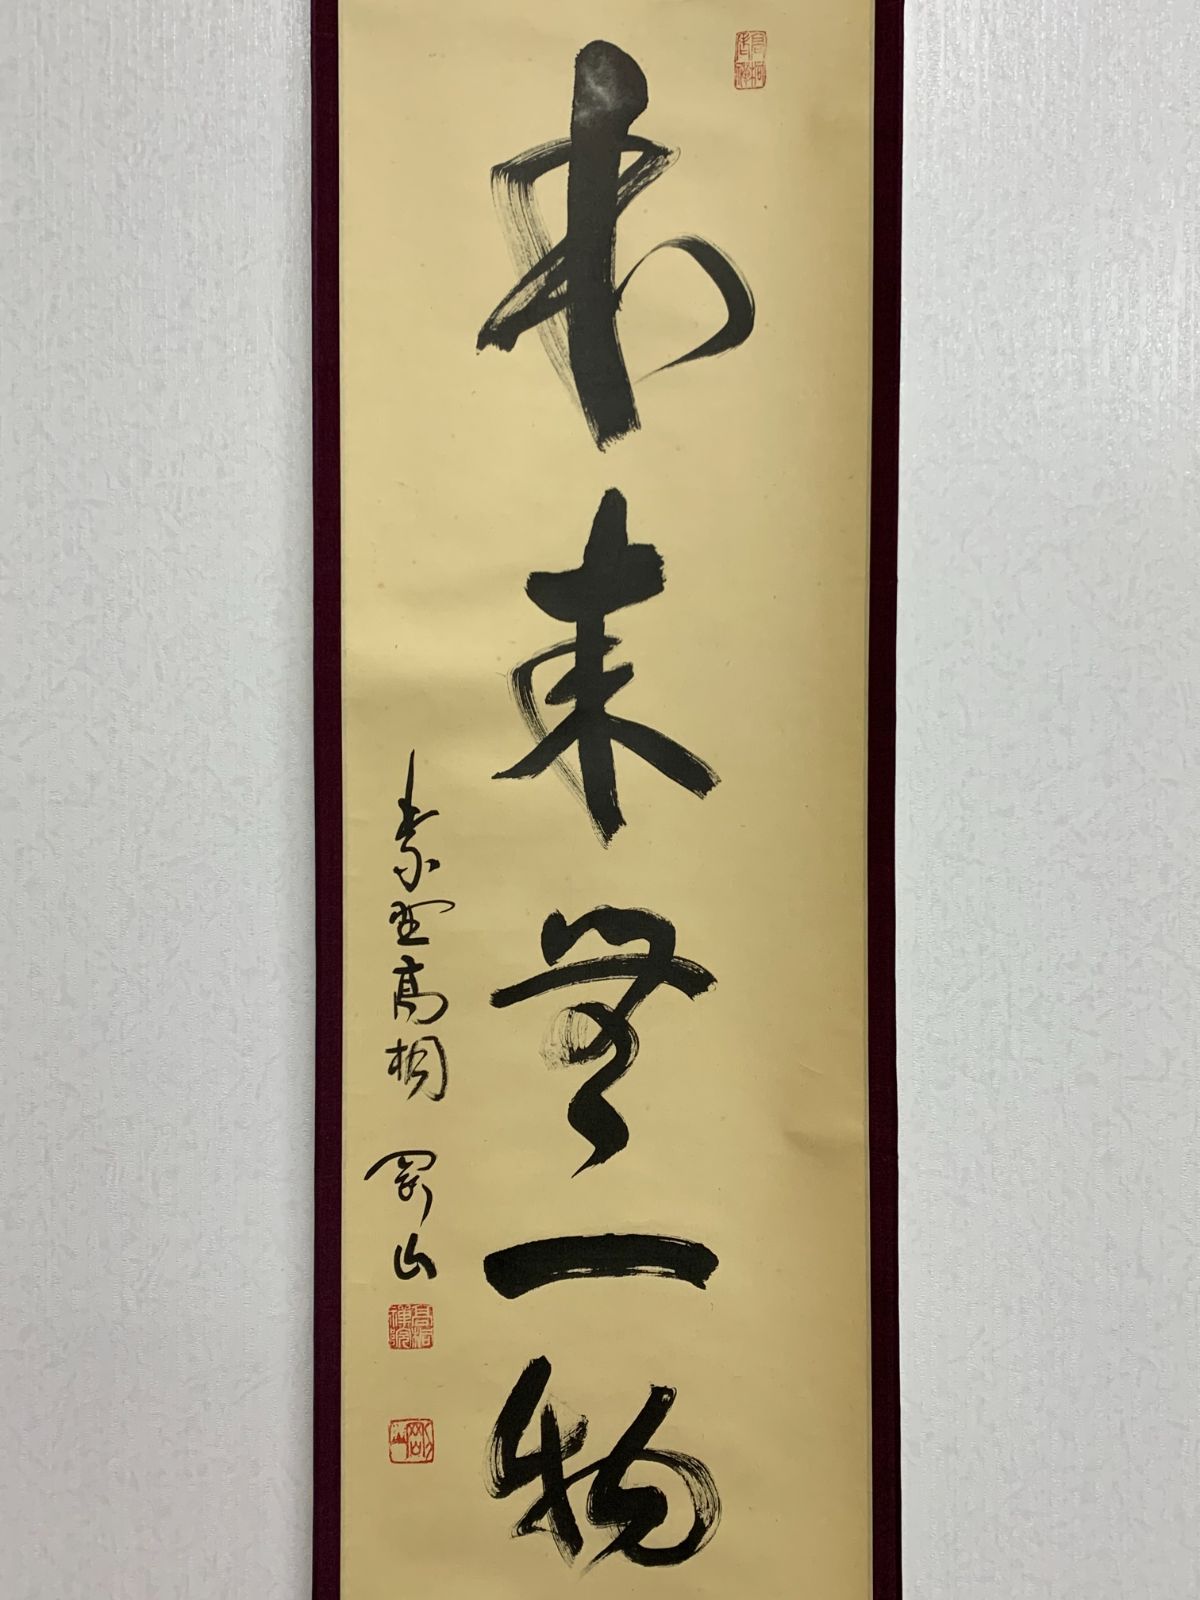 本来無一物
紫野高桐 剛山
剛山